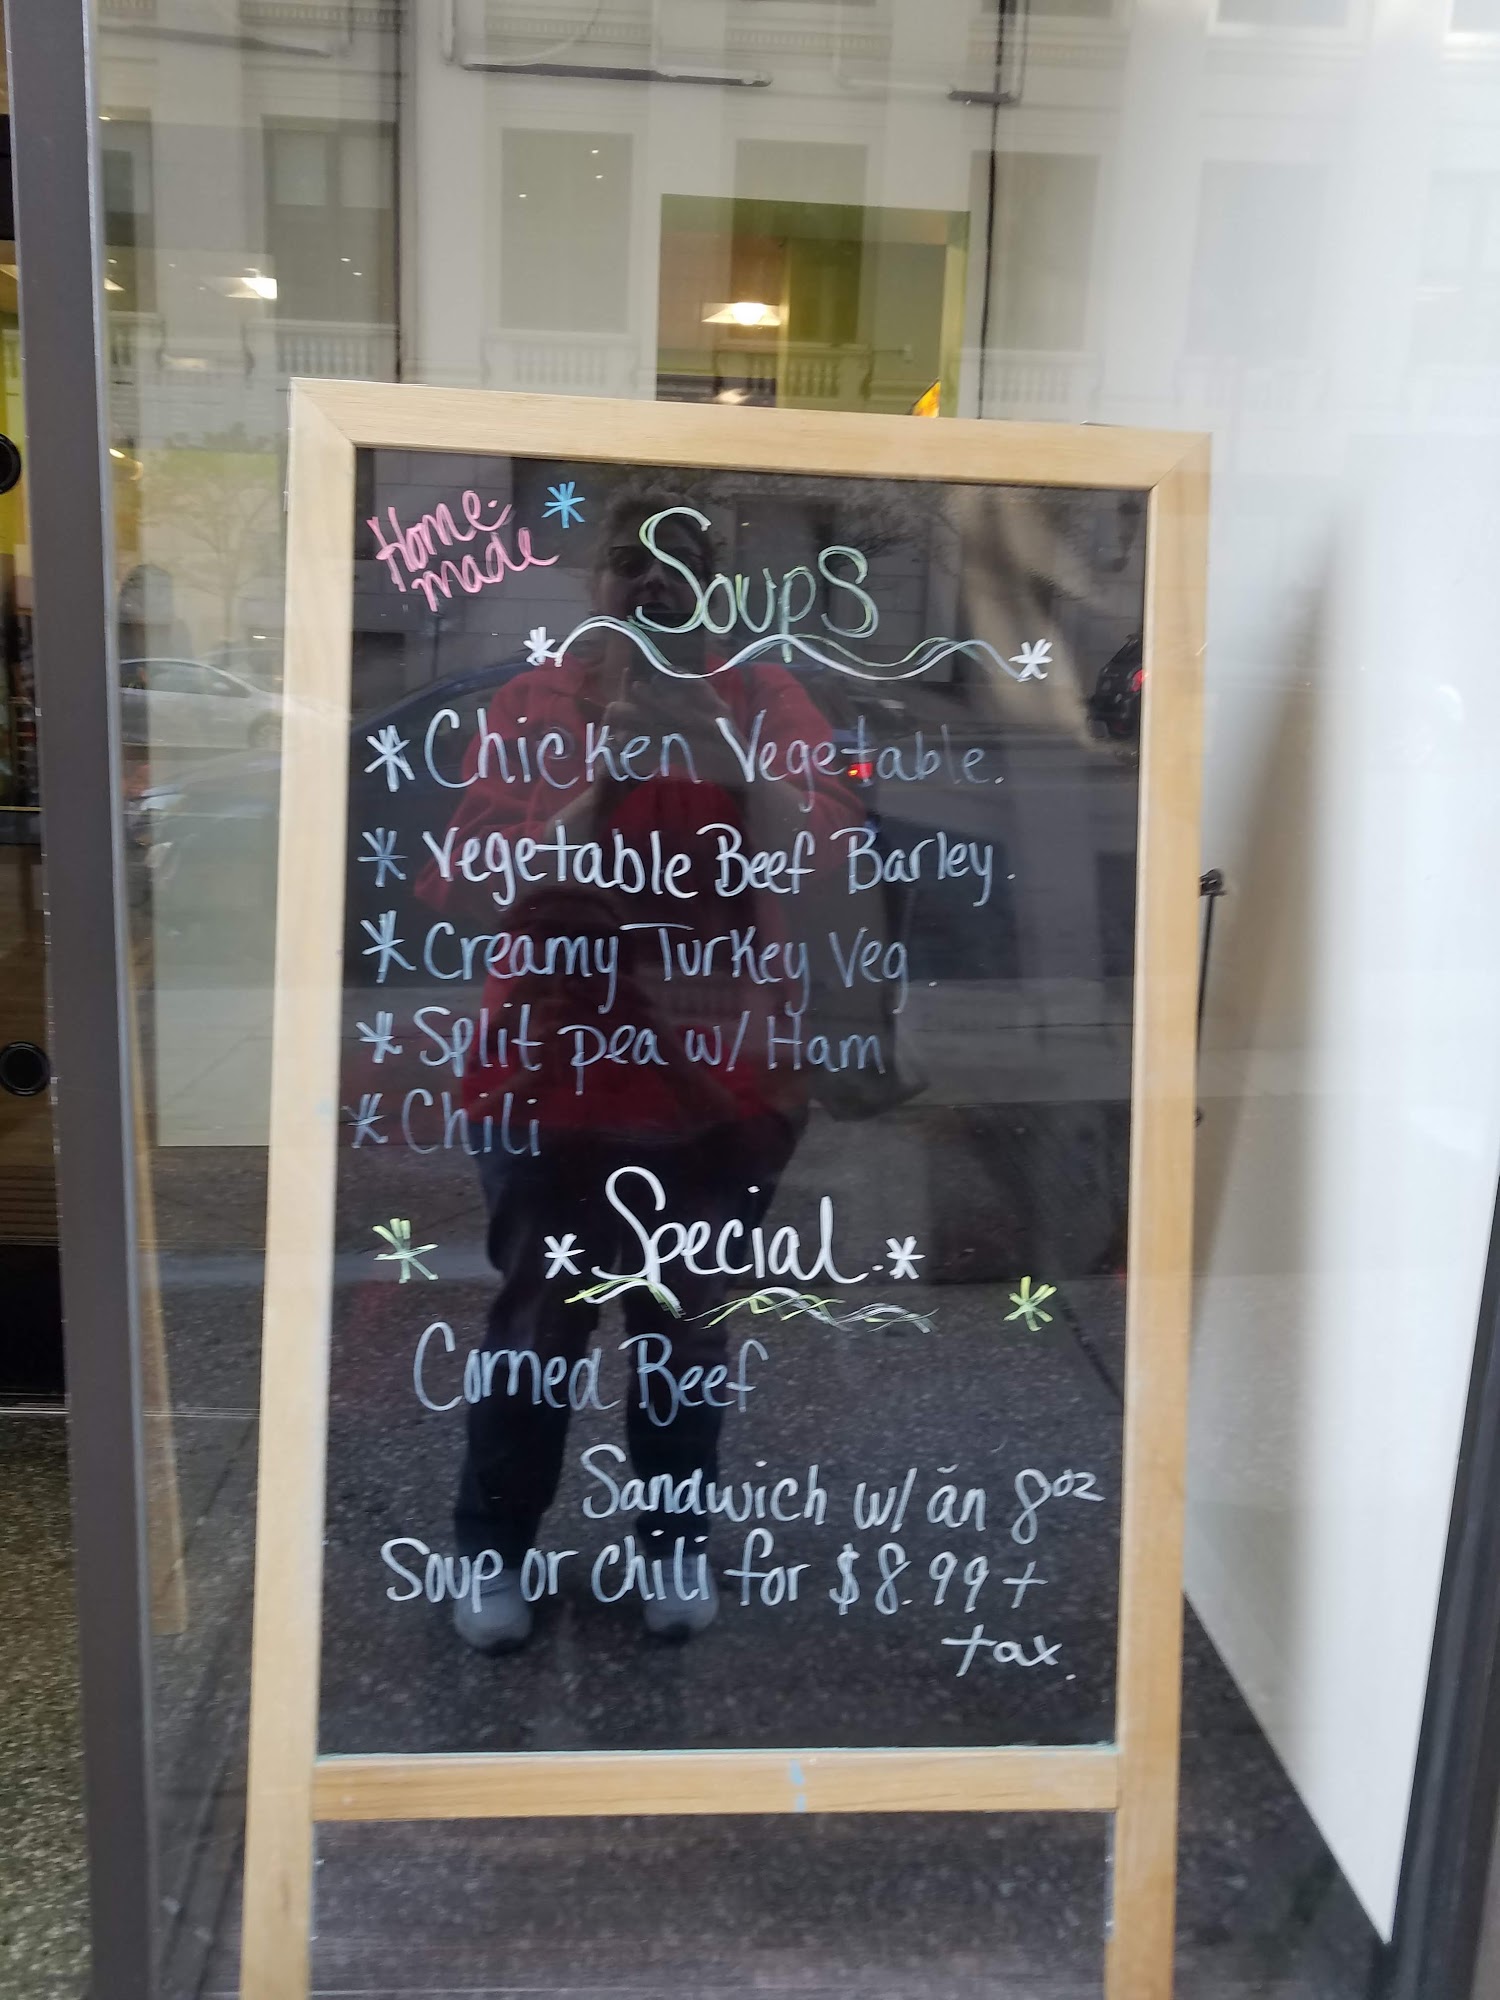 Home-
made
Soups
* Chicken Vegetable.
* Vegetable Beef Barley.
* Creamy Turkey Veg.
* Split pea w/ Ham
* Chili
* Special. *
Corned Beef
Sandwich w/ an 8oz
Soup or Chili for $8.99 +
tax.